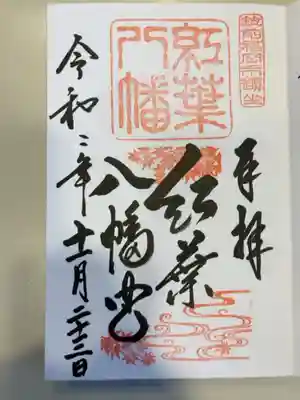 奉拝
紅葉
八幡
紅葉
八幡宮
令和二年十一月二十三日